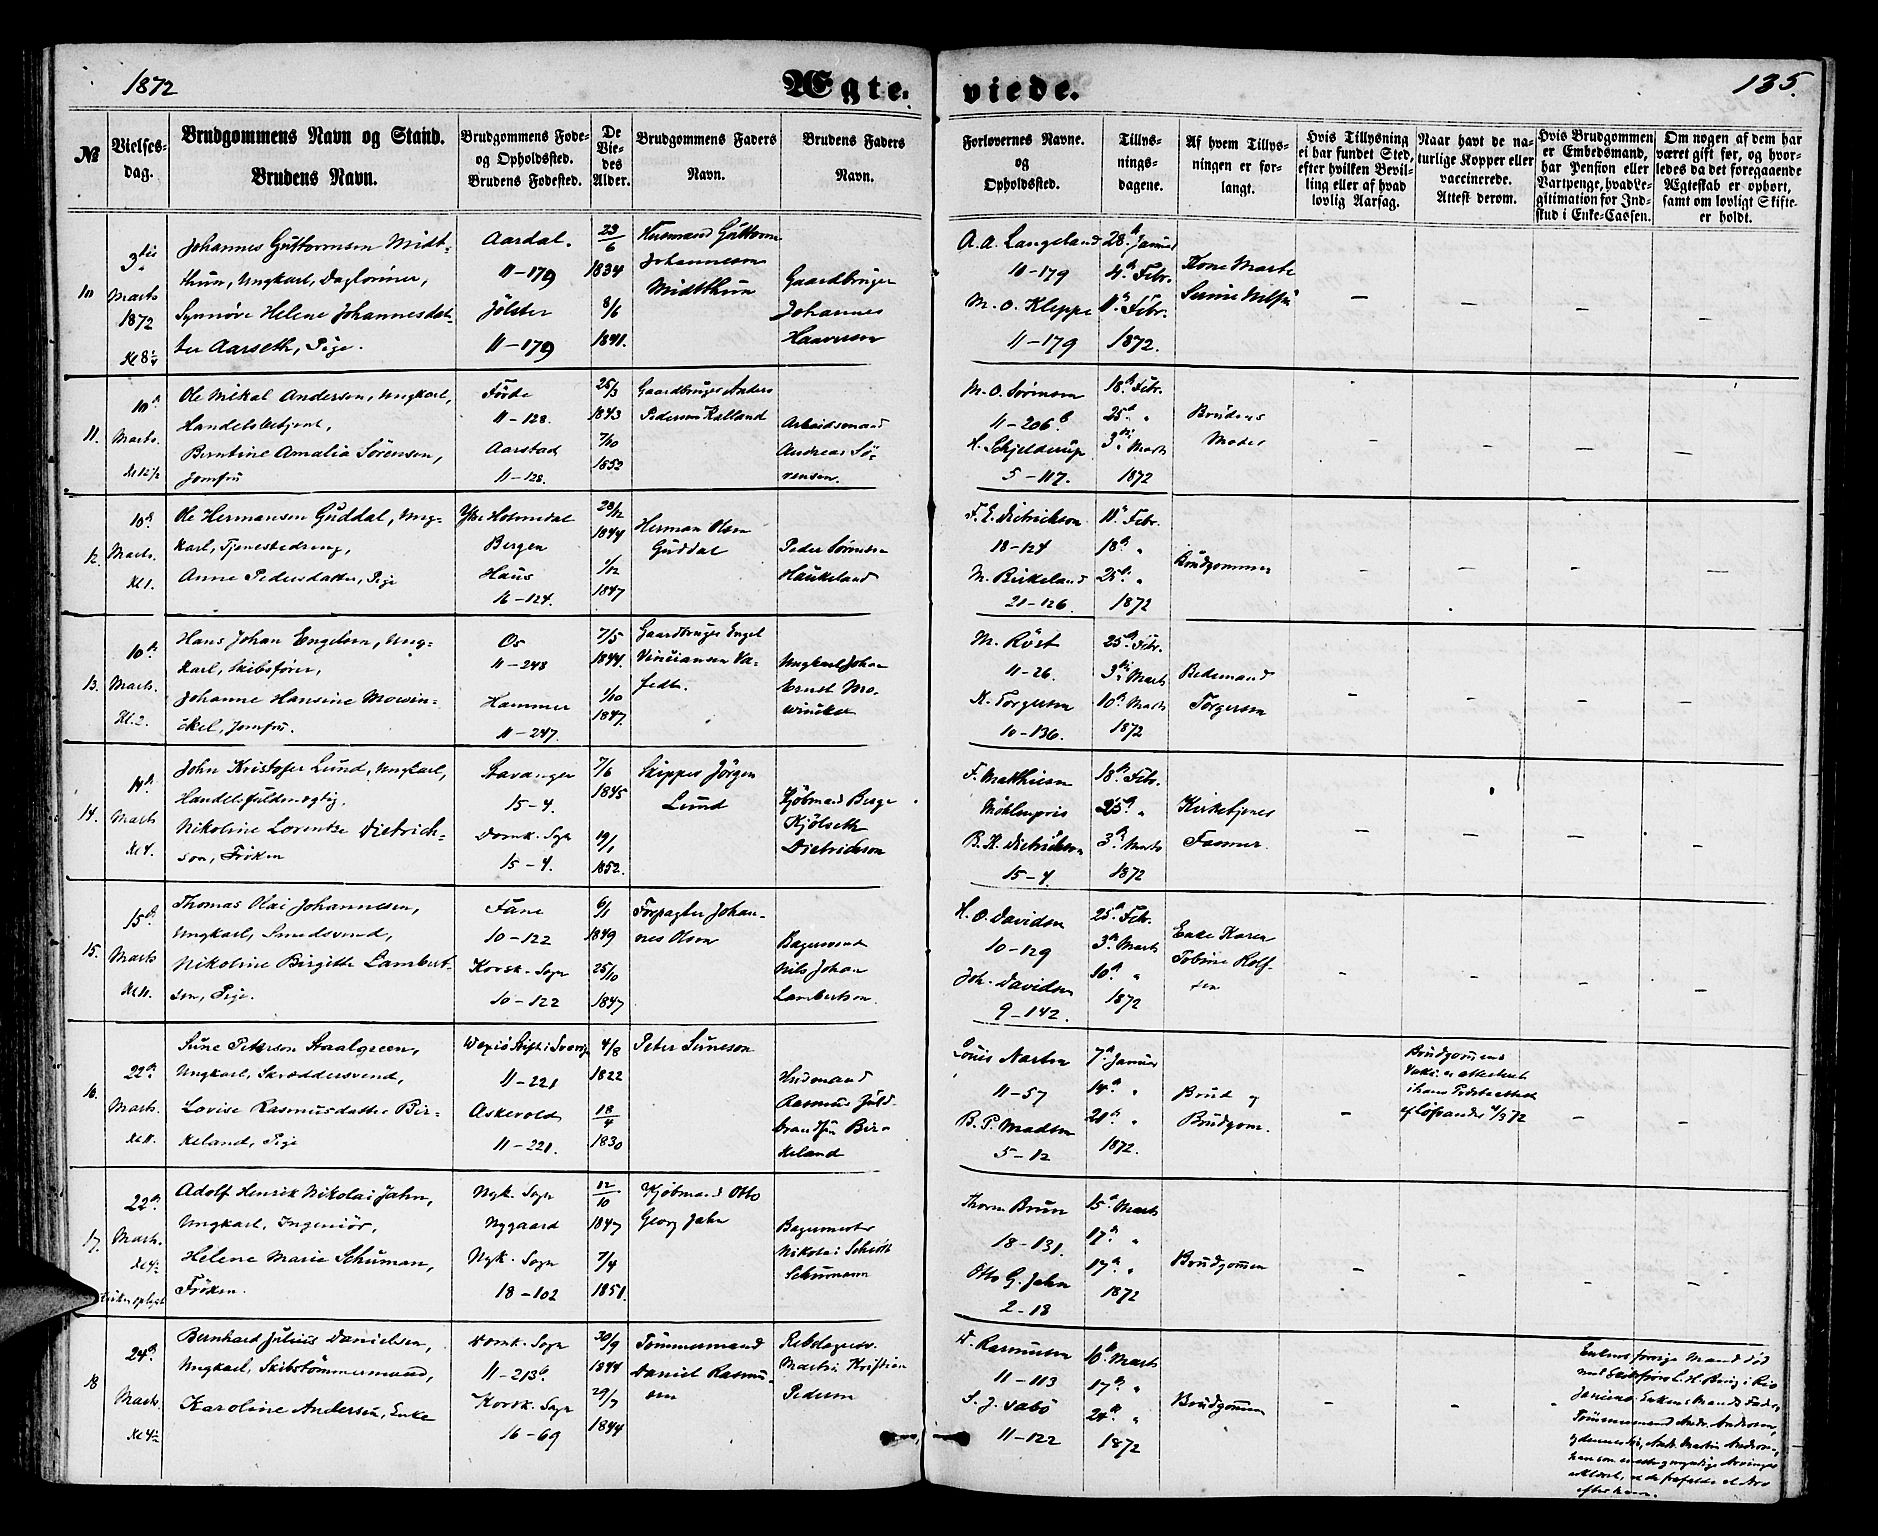 1872
Ægte-
viede.
135.
№
Vielses-
dag.
Brudgommens Navn og Stand.
Brudens Navn.
Brudgommens Føde-
og Opholdssted.
Brudens Fødested.
De
Vie-
des
Alder.
Brudgommens Faders
Navn.
Brudens Faders
Navn.
Forlovernes Navne.
og
Opholdssted.
Tillys-
nings-
dagene.
Af hvem Tillys-
ningen er for-
langt.
Hvis Tillysning
ei har fundet Sted,
efter hvilken Bevil-
ling eller af hvad
lovlig Aarsag.
Naar havt de na-
turlige Kopper eller
vaccinerede.
Attest derom.
Hvis Brudgommen
er Embedsmand,
har Pension eller
Vartpenge, hvad Le-
gitimation for Ind-
skud i Enke-Cassen.
Om nogen af dem har
været gift før, og hvor-
ledes da det foregaaende
Ægteskab er ophørt,
samt om lovligt Skifte
er holdt.
10
3die
Marts
1872
Johannes Guttormsen Midt-
thun, Ungkarl, Dagløn̄er,
Synnøve Helene Johannesdat-
ter Aarseth, Pige.
Aardal.
11-179
Jölster
11-179
23/6
1834
8/6
1841.
Husmand Guttorm
Johannesen
Midtthun
Gaardbruger
Johannes
Haaversen
A. A. Langeland
10-179
M. O. Kleppe
11-179
28. Januar
4. Febr.
11. Febr.
1872.
Kone Marte
11.
10d
Marts.
Kl 12 1/2
Ole Mikal Andersen, Ungkarl,
Handelsbetjent,
Berntine Amalia Sörensen,
Jomfru
Förde
11-128.
Aarstad
11-128.
25/3
1843
7/10
1853
Gaardbruger Anders
Pedersen Kalland
Arbeidsmand
Andreas Sö-
rensen.
M. O. Sörensen
11-206b
H. Schjelderup
5-117.
18d Febr.
25d "
3die Marts
1872
Brudens
Moder
12.
10d
Marts.
Kl 1.
Ole Hermansen Guddal, Ung-
karl, Tjenestedreng,
Anne Pedersdatter, Pige
Ytre Holmedal
Bergen
Haus
16-124.
28/12
1844
1/12
1847
Herman Olsen
Guddal
Peder Sörensen
Haukeland
F. E. Dietrichson
18-124
M. Birkeland
21-126.
11. Febr.
18d "
25d "
1872
Brudgommen
13.
10d
Marts.
Kl. 2.
Hans Johan Engelsen, Ung-
karl, Skibsförer,
Johanne Hansine Mowin-
ckel, Jomfru.
Os
11-248
Hammer
11-247.
7/5
1844.
1/10
1847.
Gaardbruger Engel
Ungkarl Johan
Ernst Mo-
winckel
M. Röst
11-26.
K. Torgersen
10-136.
25d Febr.
3die Marts
10d Marts
1872
Bedemand
Torgersen
14.
14d
Marts
Kl 4.
John Kristofer Lund, Ungkarl,
Handelsfuldmægtig.
Nikoline Lorentze Dietrich-
son, Fröken
Stavanger
15-4.
Domk. Sogn
15-4.
7/6
1845
19/1
1852.
Skipper Jörgen
Lund
Kjöbmand Berge
Kjölseth
Dietrichson
F. Matthiesen
Möhlenpris
B. K. Dietrichson
15-4.
18d Febr.
25d "
3d Marts
1872
Kirketjener
Fasmer.
15.
15d
Marts
Kl 11.
Thomas Olai Johannesen,
Ungkarl, Smedsvend,
Nikoline Birgitte Lambert-
sen, Pige.
Fane
10-122
Korsk. Sogn
10-122
6/1
1849
25/10
1847
Forpagter Johan-
nes Olsen
Bagersvend
Nils Johan
Lambertsen.
H. O. Davidsen
10-129
Joh. Davidsen
9-142.
25d Febr.
3d Marts
10d "
1872
Enke Karen
Tobine Rolf-
sen
16.
22d
Marts.
Kl 11.
Sune Peterson Staalgreen,
Ungkarl, Skræddersvend,
Lovise Rasmusdatter Bir-
keland, Pige
Wexiö Stift i Sverig
11-221
Askevold
11-221.
4/8
1822
18/4
1830
Peter Suneson
Husmand
Rasmus Guld-
brandsen Bir-
keland
Louis Narten
11-57
B. P. Madsen
5-12
7d Januar
14d "
21d "
1872.
Brud og
Brudgom.
Brudgommens
17.
22d
Marts.
Adolf Henrik Nikolai Jahn,
Ungkarl, Ingeniör,
Helene Marie Schuman,
Fröken.
Nyk. Sogn
Nygaard
Nyk. Sogn
18-102
12/10
1847
7/4
1851.
Kjöbmand Otto
Georg Jahn
Bagermester
Nikolai Schiött
Schumann
Thorm Brun
18-131.
Otto G. Jahn
2-18
15d Marts
17d "
17d "
1872
Brudgommen
18
24d
Marts.
Bernhard Julius Danielsen,
Ungkarl, Skibstömmermand,
Karoline Andersen, Enke
Domk. Sogn
11-213b.
Korsk. Sogn
16-69
30/9
1844
29/7
1844
Tömmermand
Daniel Rasmu-
sen
Rebslagersv.
Martin Kristian
Pedersen
W. Rasmussen
11-113
S. J. Sabö
11-122
10d Marts
17d "
24d "
1872
Brudgommen
Enkens forrige Mand död
Janeiro. Enkens Mands Fader
Tömmermand Andr. Andersen,